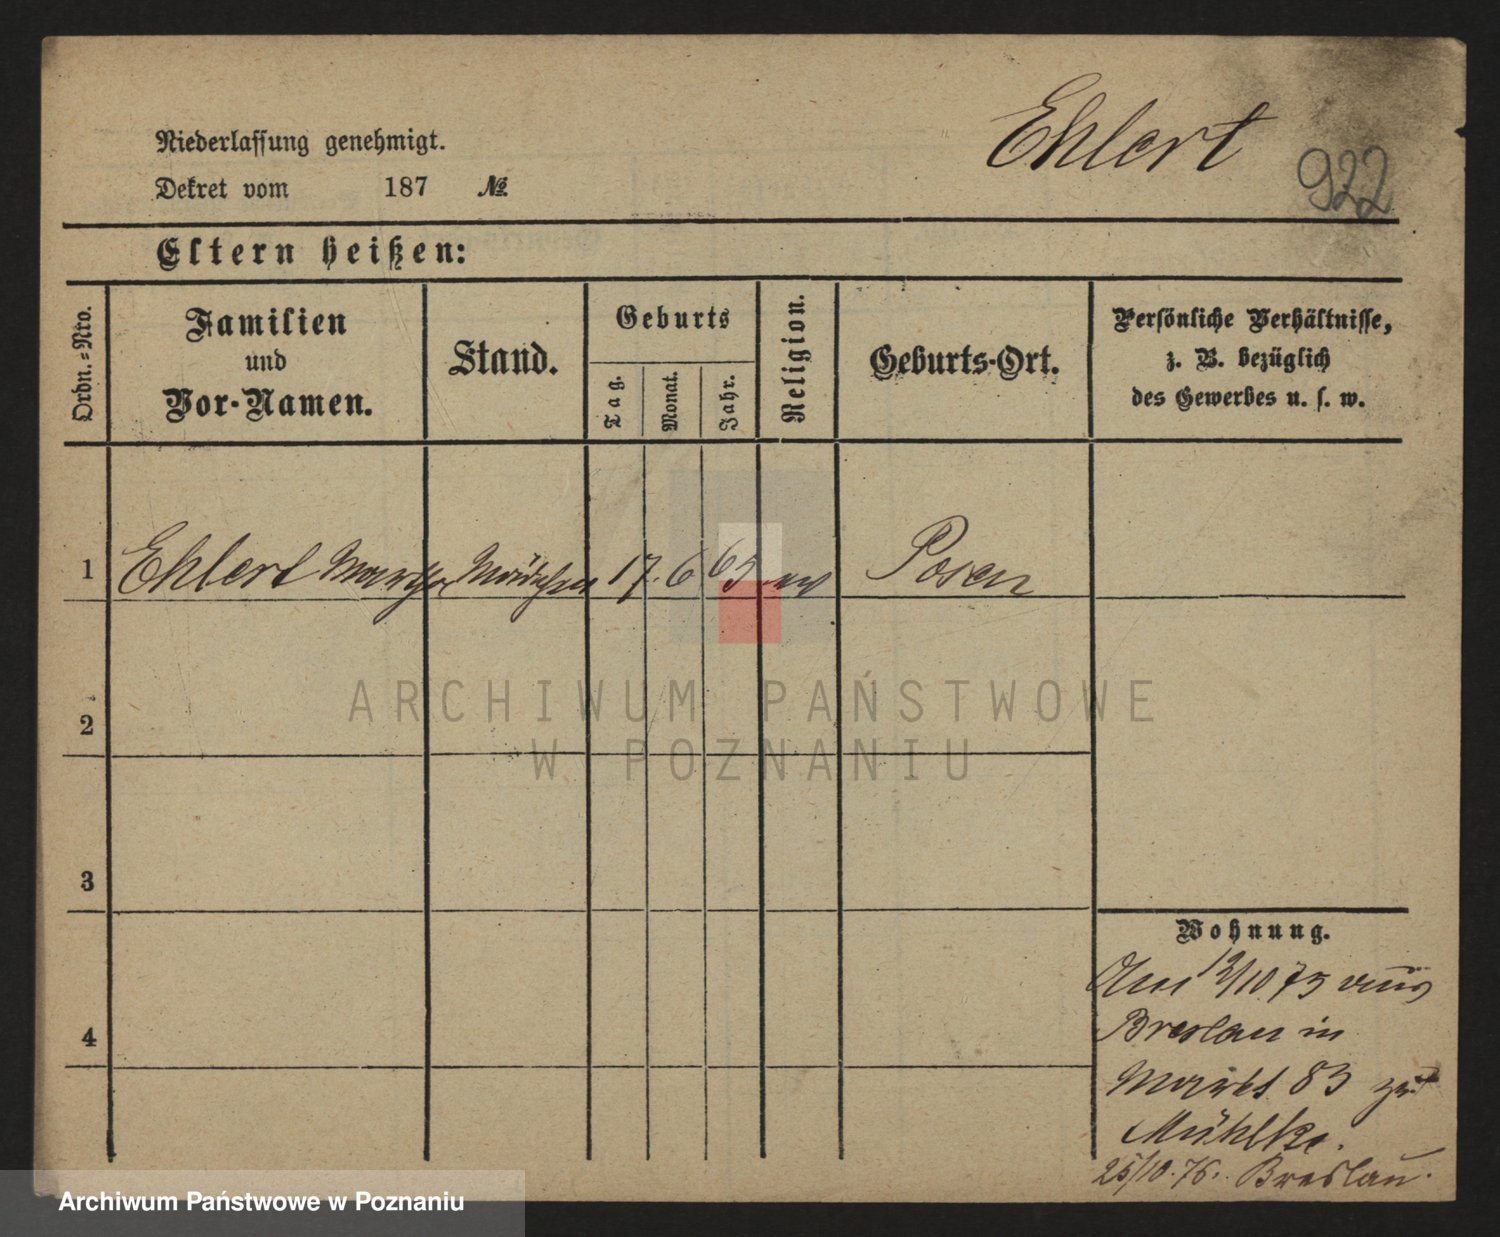 Ehlert
922
Niederlassung genehmigt.
Dekret vom 187 №
Eltern heißen:
Ordn.=Nro.
Familien
und
Vor-Namen.
Stand.
Geburts
Tag.
Monat.
Jahr.
Religion.
Geburts-Ort.
Persönliche Verhältnisse,
z. B. bezüglich
des Gewerbes u. s. w.
1 Ehlert Martha Mädchen 17. 6 65 ev Posen
2
3
4
Wohnung.
12/10 75 aus
Breslau in
Markt 83 zu
Mühlke.
25/10. 76. Breslau.
ARCHIWUM PAŃSTWOWE
W POZNANIU
Archiwum Państwowe w Poznaniu